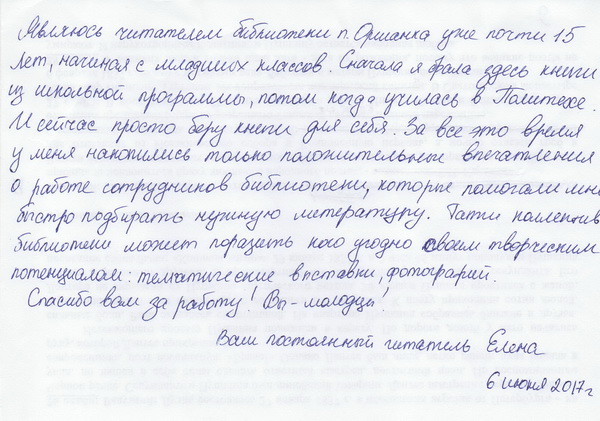 Являюсь читателем библиотеки п. Оршанка уже почти 15
лет, начиная с младших классов. Сначала я брала здесь книги
из школьной программы, потом когда училась в Политехе.
И сейчас просто беру книги для себя. За все это время
у меня накопились только положительные впечатления
о работе сотрудников библиотеки, которые помогали мне
быстро подбирать нужную литературу. Также коллектив
библиотеки может поразить кого угодно своим творческим
потенциалом: тематические выставки, фотографий.
Спасибо вам за работу! Вы - молодцы!
Ваш постоянный читатель Елена
6 июня 2017 г